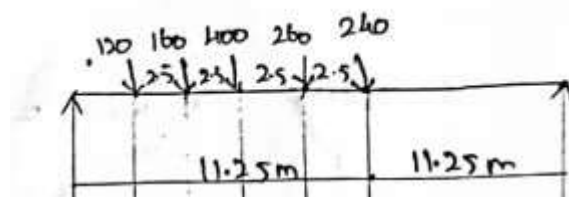 120 160 400 260 240
2.5 2.5 2.5 2.5
11.25m 11.25m